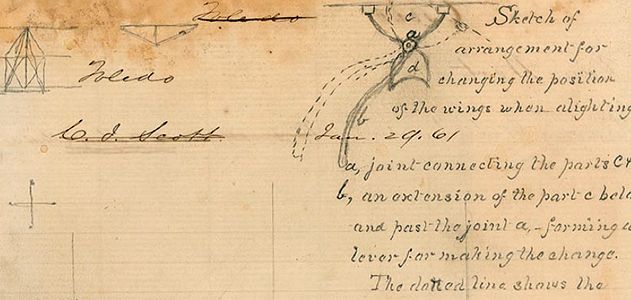 Toledo
Toledo
C. J. Scott.
Sketch of
arrangement for
changing the position
of the wings when alighting
Jan. 29. 61
c
a
d
b
a, joint connecting the parts C
b, an extension of the part c
and past the joint a, - forming a
lever for making the change.
The dotted line shows the